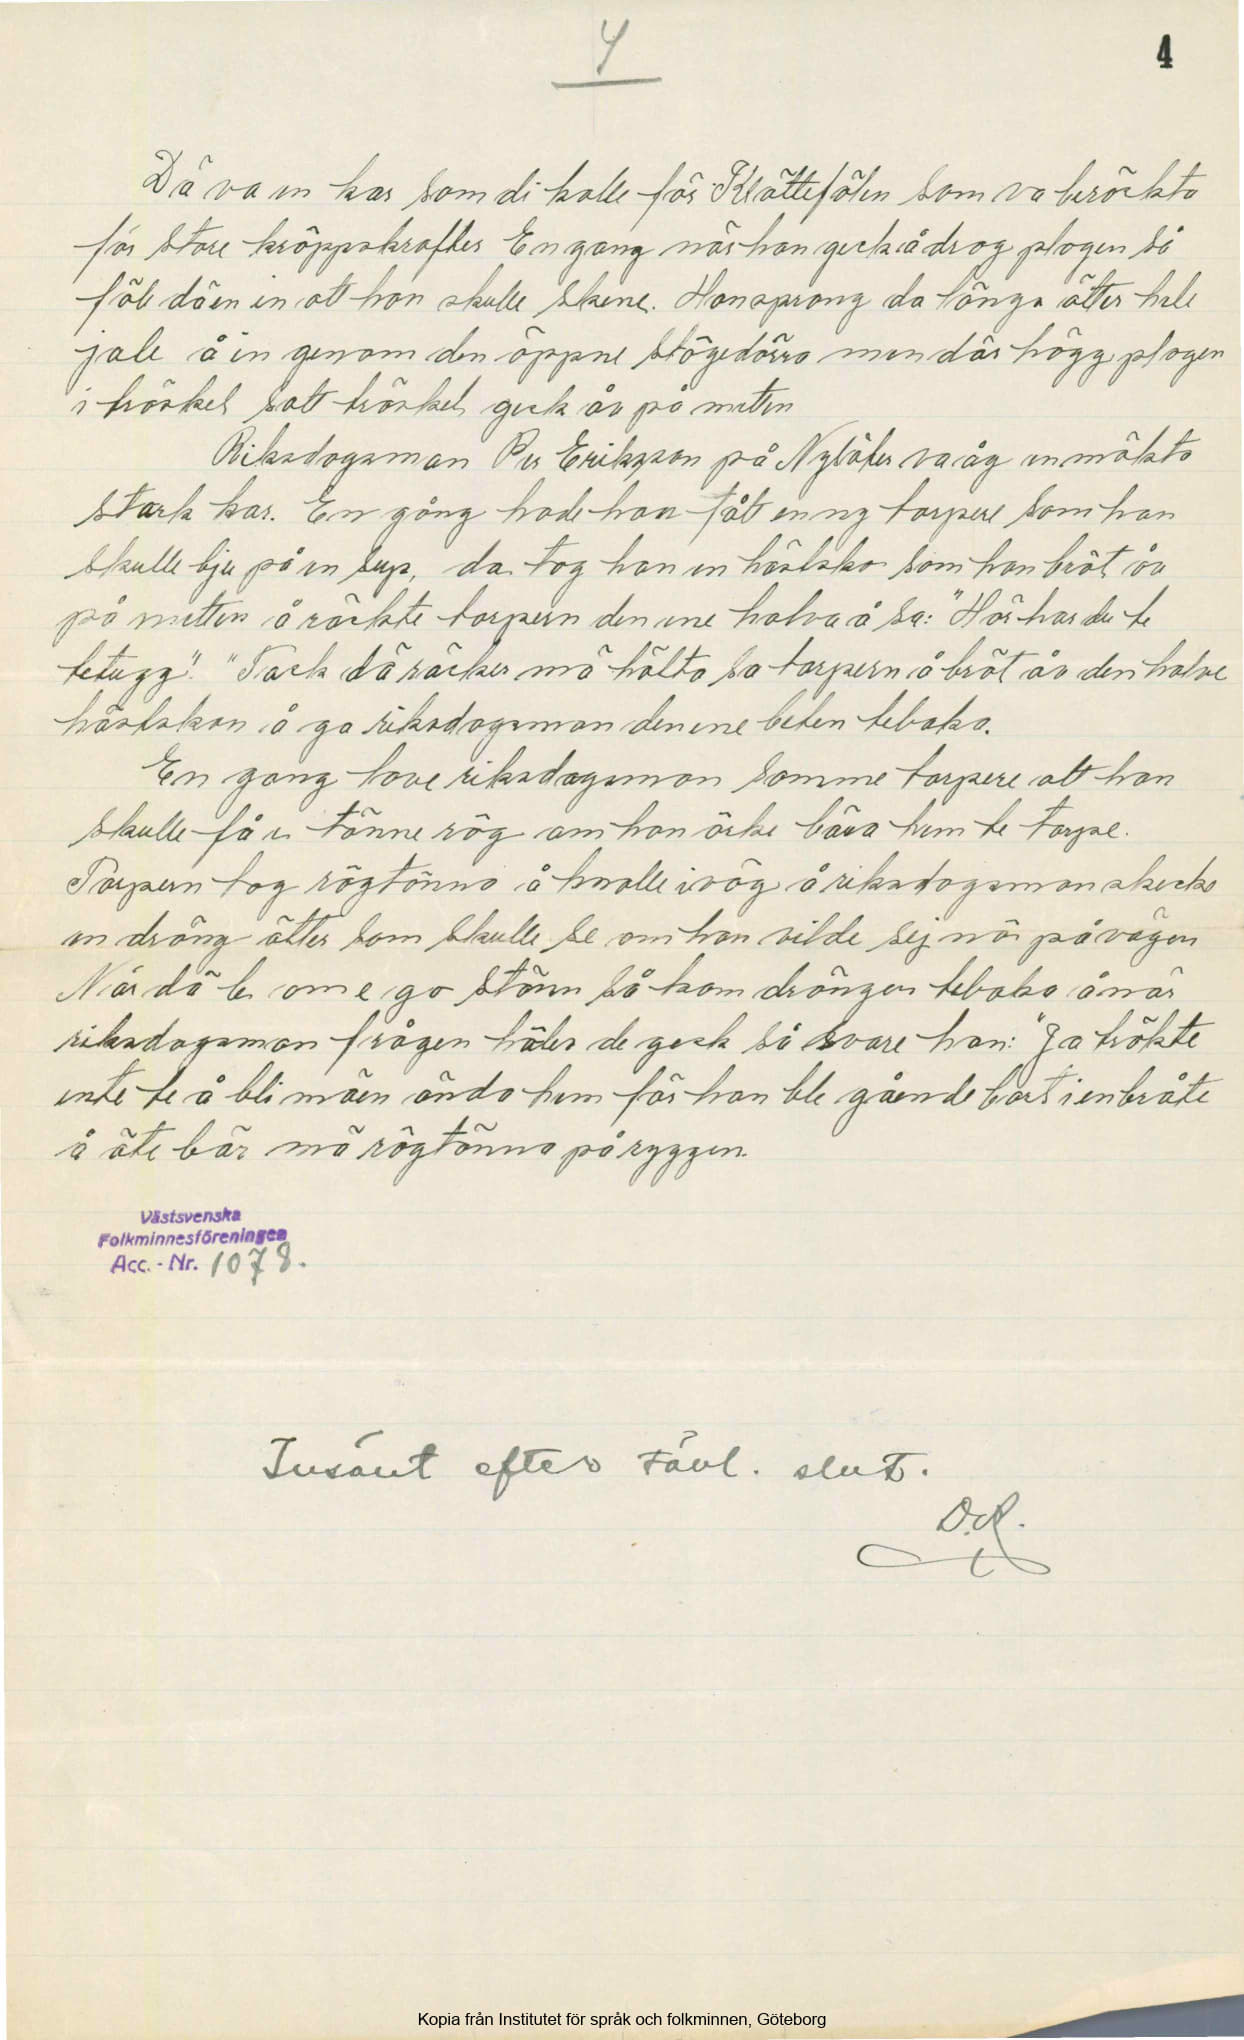 4
4
Dä va en kar som di kalle för Klåttefôlen som va beröckta
för store kröppskrafter En gang när han geck å drog plogen så
föll däen in att han skulle skene. Han sprang da länga ätter hele
jale å in genom den öppne stögedörra men där högg plogen
i tröskel satt tröskel geck åv på metten
Riksdagsman Per Eriksson på Nylöter va åg en mökta
stark kar. En gång hade han fått en ny torpere som han
skulle bju på en sup, da tog han en hästsko som han bröt åv
på metten å räckte torpern den ene halva å sa: "Här har du te
tetugg". "Tack dä räcker mä hälta sa torpern å bröt åv den halve
hästskon å ga riksdagsman den ene beten tebaka.
En gang love riksdagsman somme torpere att han
skulle få en tönne rög om han örke bära hem te torpe.
Torpern tog rögtönna å knalle iväg å riksdagsman skecka
en dräng ätter som skulle se om han vilde sej nôn på vägen
När dä le om e go stônn så kom drängen tebaka å när
riksdagsman frågen hôles de geck så svare han: "Ja trökte
inte te å bli mäen ända hem för han ble gående bort i en bråte
å äte bär mä rögtönna på ryggen.
Västsvenska
Folkminnesföreningen
Acc.-Nr. 1078.
Insänt efter tävl. slut.
D.A.
Kopia från Institutet för språk och folkminnen, Göteborg